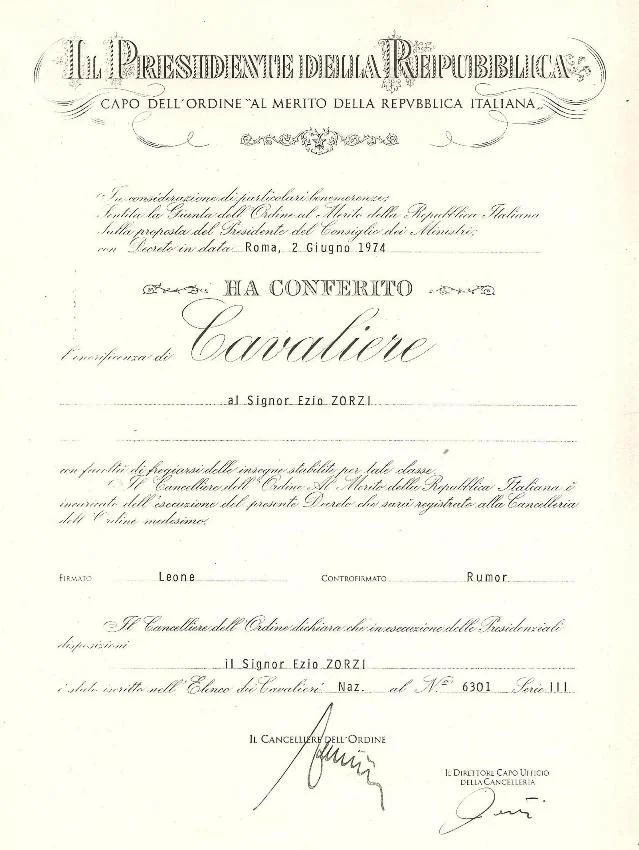 IL PRESIDENTE DELLA REPUBBLICA
CAPO DELL'ORDINE "AL MERITO DELLA REPVBBLICA ITALIANA„
In considerazione di particolari benemerenze;
Sentita la Giunta dell'Ordine al Merito della Repubblica Italiana
Sulla proposta del Presidente del Consiglio dei Ministri;
con Decreto in data Roma, 2 Giugno 1974
HA CONFERITO
l'onorificenza di Cavaliere
al Signor Ezio ZORZI
con facoltà di fregiarsi delle insegne stabilite per tale classe.
Il Cancelliere dell'Ordine Al Merito della Repubblica Italiana è
incaricato dell'esecuzione del presente Decreto che sarà registrato alla Cancelleria
dell'Ordine medesimo.
FIRMATO Leone CONTROFIRMATO Rumor
Il Cancelliere dell'Ordine dichiara che in esecuzione delle Presidenziali
disposizioni
il Signor Ezio ZORZI
è stato iscritto nell'Elenco dei Cavalieri Naz. al N.° 6301 Serie III
IL CANCELLIERE DELL'ORDINE
IL DIRETTORE CAPO UFFICIO
DELLA CANCELLERIA